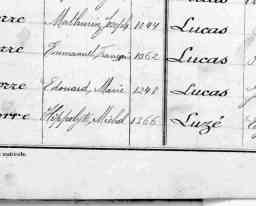 rre Mathurin Joseph 1044 Lucas
rre Emmanuel François 1062 Lucas
rre Edouard Marie 1248 Lucas
rre Hippolyte Michel 1266 Luzé
matricule.